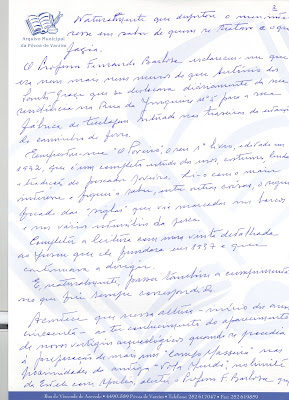 2
Arquivo Municipal
da Póvoa de Varzim
Naturalmente que despertou o meu inte-
resse em saber de quem se tratava e o que
fazia.
O Professor Fernando Barbosa esclareceu-me que
era nem mais nem menos do que António dos
Santos Graça que se deslocava diariamente da sua
residência na Rua do para a sua
fábrica de situada nas traseiras da estação
do caminho de ferro.
Emprestou-me "O Poveiro", o seu 1º livro, editado em
1932, que é um completo estudo dos usos, costumes, lendas
e tradições do pescador poveiro. Li-o com o maior
interesse e fiquei a saber, entre outras coisas, o signi-
ficado das "siglas" que vi marcadas nos barcos
e nos vários utensílios da pesca.
Completei a leitura com uma visita detalhada
ao Museu que ele fundara em 1937 e que
continuava a dirigir.
E naturalmente, passei também a cumprimentá-lo
no que fui sempre correspondido.
Aconteceu que nessa altura - início dos anos
cinquenta - se teve conhecimento do aparecimento
de novos vestígios arqueológicos quando se procedia
à preparação de mais um "campo masseira" nas
proximidades do antigo
de Estela com Apúlia, alertei o Professor F. Barbosa, que
Rua do Visconde de Azevedo • 4490-589 Póvoa de Varzim • Telefone 252 617 047 • Fax 252 619 859